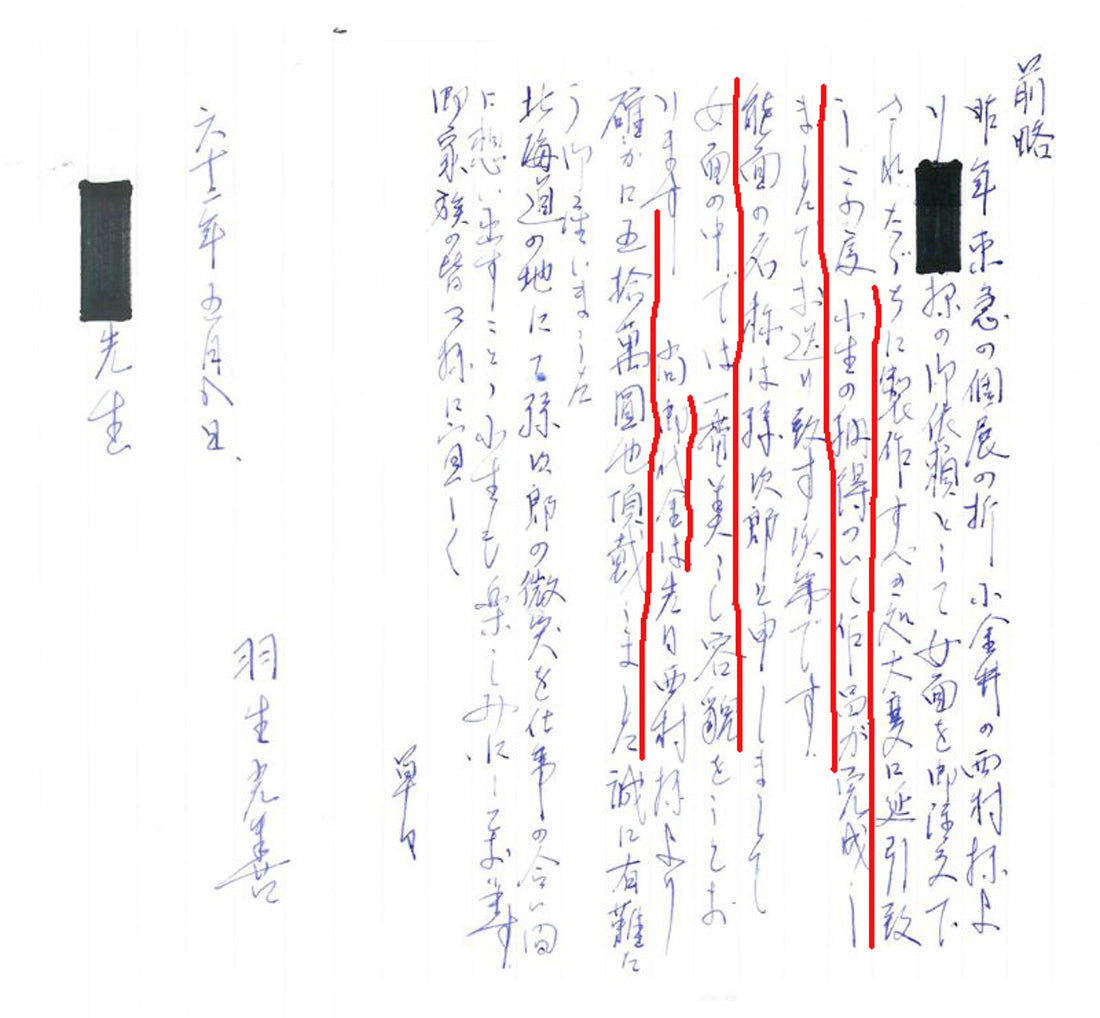 前略
昨年東急の個展の折小金井の西村様よ
り 様の御依頼として女面を御注文下
さればたゞちに製作すべき処大変に延引致
しこの度小生の納得のいく作品が完成し
ましたてお送り致す次第です.
能面の名称は孫次郎と申しまして
女面の中では一番美しし容貌をしてお
ります 尚御代金は先日西村様より
確かに五拾萬圓也頂戴しました誠に有難た
う御座いました
北海道の地にて孫次郎の微笑を仕事の合い間
に想い出すこと小生も楽しみにして居ます.
御家族の皆々様に宜しく
草々
羽生光善
六十二年五月八日.
先生